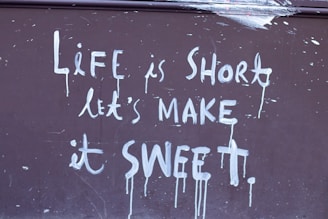 LiFE is SHORt
LET'S MAKE
it SWEEt.